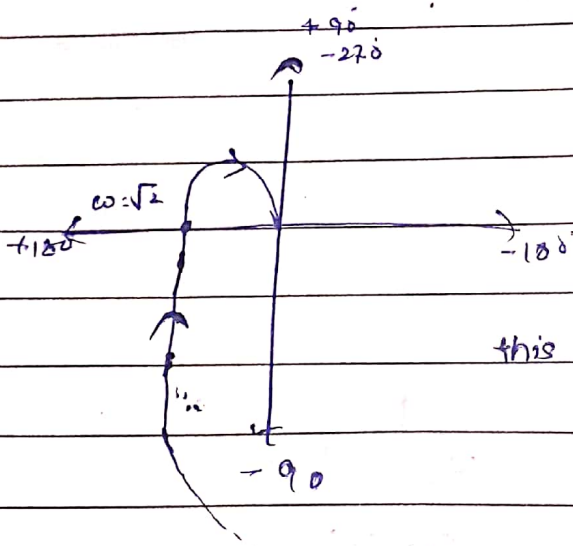 + 90°
-270°
ω=√2
+180
-180°
this
-90